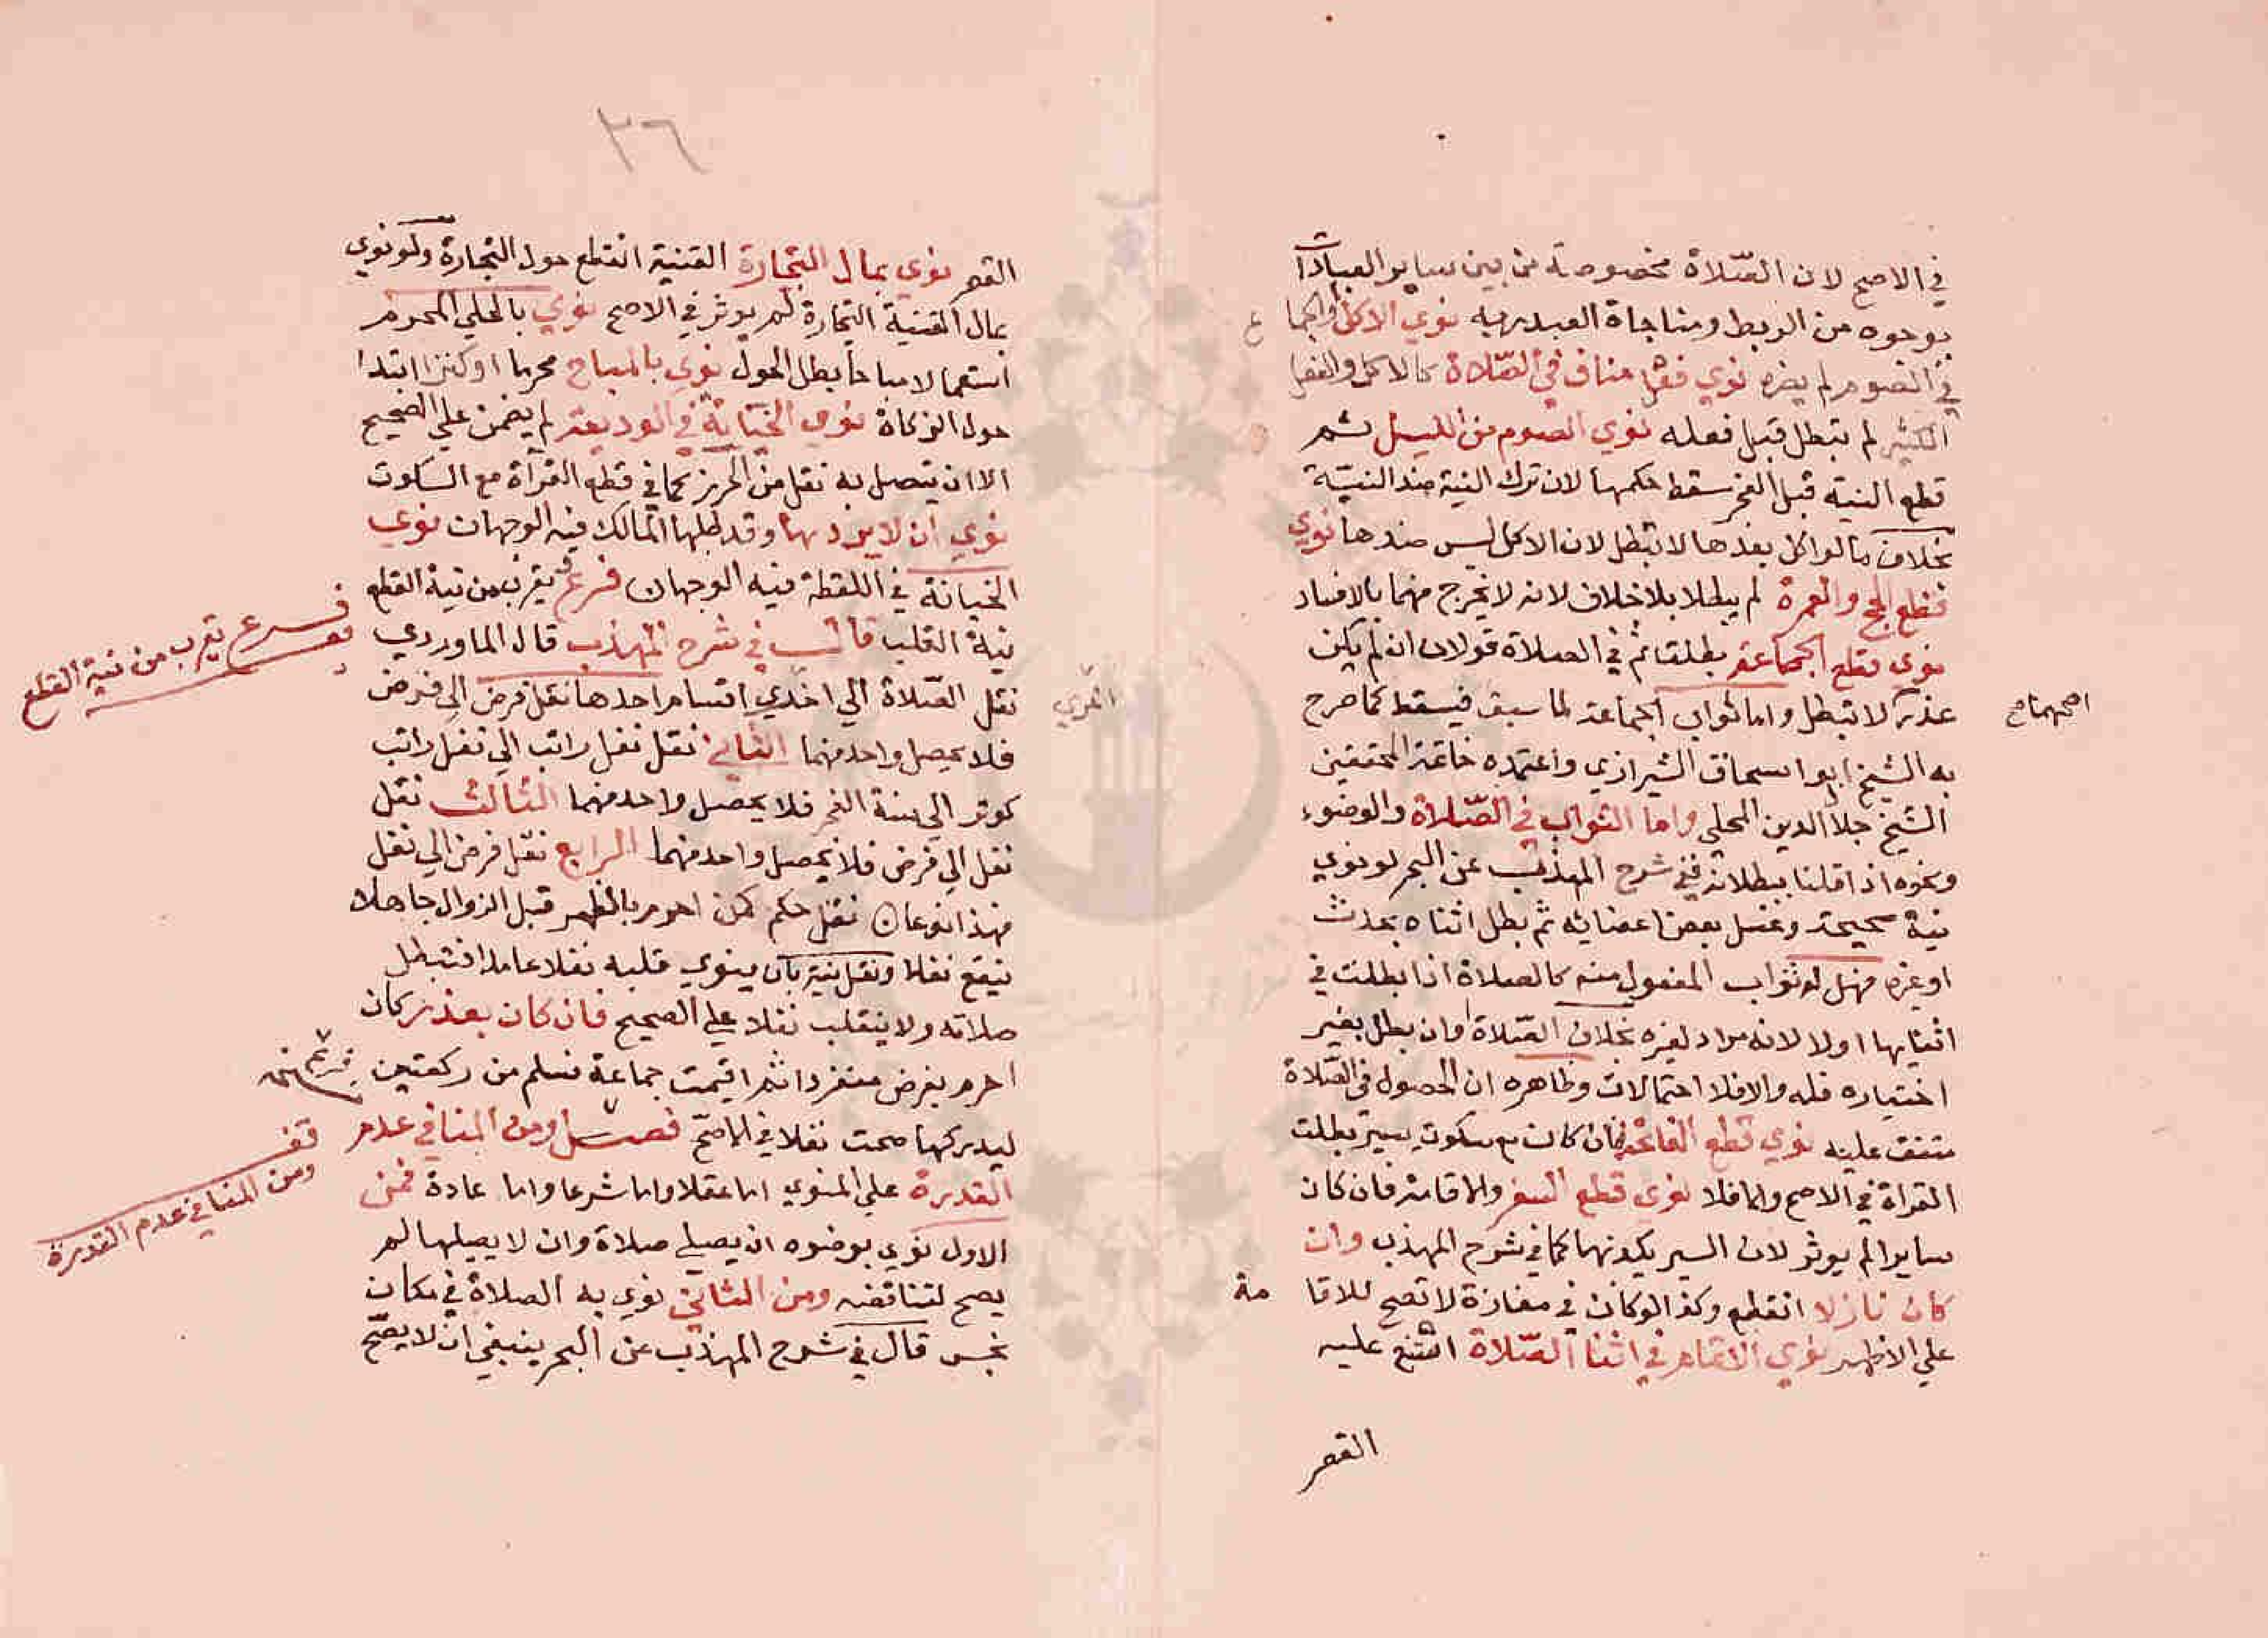 في الاصح لان الصّلاة مخصوصة من بين ساير العبادات
بوجوه من الربط ومناجاة العبد ربه نوي الاكل والجما ع
في الصوم لم يضره نوي فعل مناف في الصّلاة كالاكل والفعل
الكثير لم تبطل قبل فعله نوي الصوم من الليل ثم
قطع النية قبل الفجر سقط حكمها لان ترك النية ضد النيّة
بخلاف ما لو اكل بعدها لا تبطل لان الاكل ليس ضدها نوي
قطع الحج والعمرة لم يبطلا بلا خلاف لانه لا يخرج منهما بالافساد
نوي قطع الجماعة بطلت ثم في الصلاة قولان ان لم يكن
اصحهما ص
عذر لا تبطل واما ثواب الجماعة لما سبق فيسقط كما صرح
به الشيخ ابوا اسحاق الشيرازي واعتمده خاتمة المحققين
الشيخ جلال الدين المحلى واما الثواب في الصّلاة والوضوء
ونحوه اذا قلنا ببطلانه ففي شرح المهذب عن البحر لو نوي
نية صحيحة وغسل بعض اعضايه ثم بطل اثناه بحدث
او غيره فهل له ثواب المفعول منه كالصلاة اذا بطلت في
اثنايها اولا لانه مراد لغيره بخلاف الصّلاة او ان بطل بغير
اختياره فله والا فلا احتمالات وظاهره ان الحصول في الصّلاة
متفق عليه نوي قطع الفاتحة فان كان مع سكوت يسير بطلت
القراة في الاصح والا فلا نوي قطع السفر والاقامة فان كان
سايرا لم يوثر لان السير يكذبها كما في شرح المهذب وان
كان نازلا انقطع وكذا لو كان في مفازة لا تصح للاقا مة
علي الاظهر نوي الاتمام في اثنا الصّلاة امتنع عليه
القصر
٢٦
القصر نوي بمال التجارة القنية انقطع حول التجارة ولو نوي
بمال القنية التجارة لم يوثر في الاصح نوي بالحلي المحرم
استعمالا مباحا بطل الحول نوي بالمباح محرما او كنزا ابتدا
حول الزكاة نوي الخيانة في الوديعة لم يضمن علي الصحيح
الا ان يتصل به نقل من الحرز كما في قطع القراة مع السكوت
نوي ان لا يردها وقد طلبها المالك فيه الوجهان نوي
الخيانة في اللقطة فيه الوجهان فرع يقرب من نية القطع
فرع يقرب من نية القطع
نية القلب قال في شرح المهذب قال الماوردي
نقل الصّلاة الي اخري اقسام احدها نقل فرض الي فرض
فلا يحصل واحد منهما الثاني نقل نفل راتب الي نفل راتب
كوتر الي سنة الفجر فلا يحصل واحد منهما الثالث نقل
نفل الي فرض فلا يحصل واحد منهما الرابع نقل فرض الي نفل
فهذا نوعان نقل حكم كمن احرم بالظهر قبل الزوال جاهلا
فيقع نفلا ونقل نية بان ينوي قلبه نفلا عامدا فتبطل
صلاته ولا ينقلب نفلا علي الصحيح فان كان بعذر كان
احرم بفرض منفردا ثم اقيمت جماعة فسلم من ركعتين
ليدركها صحت نفلا في الاصحّ فصل ومن المنافي عدم
قف
ومن المنافي عدم القدرة
القدرة علي المنوي اما عقلا واما شرعا واما عادة فمن
الاول نوي بوضوه ان يصلي صلاة وان لا يصليها لم
يصح لتناقضه ومن الثاني نوي به الصلاة في مكان
نجس قال في شرح المهذب عن البحر ينبغي ان لا يصحّ